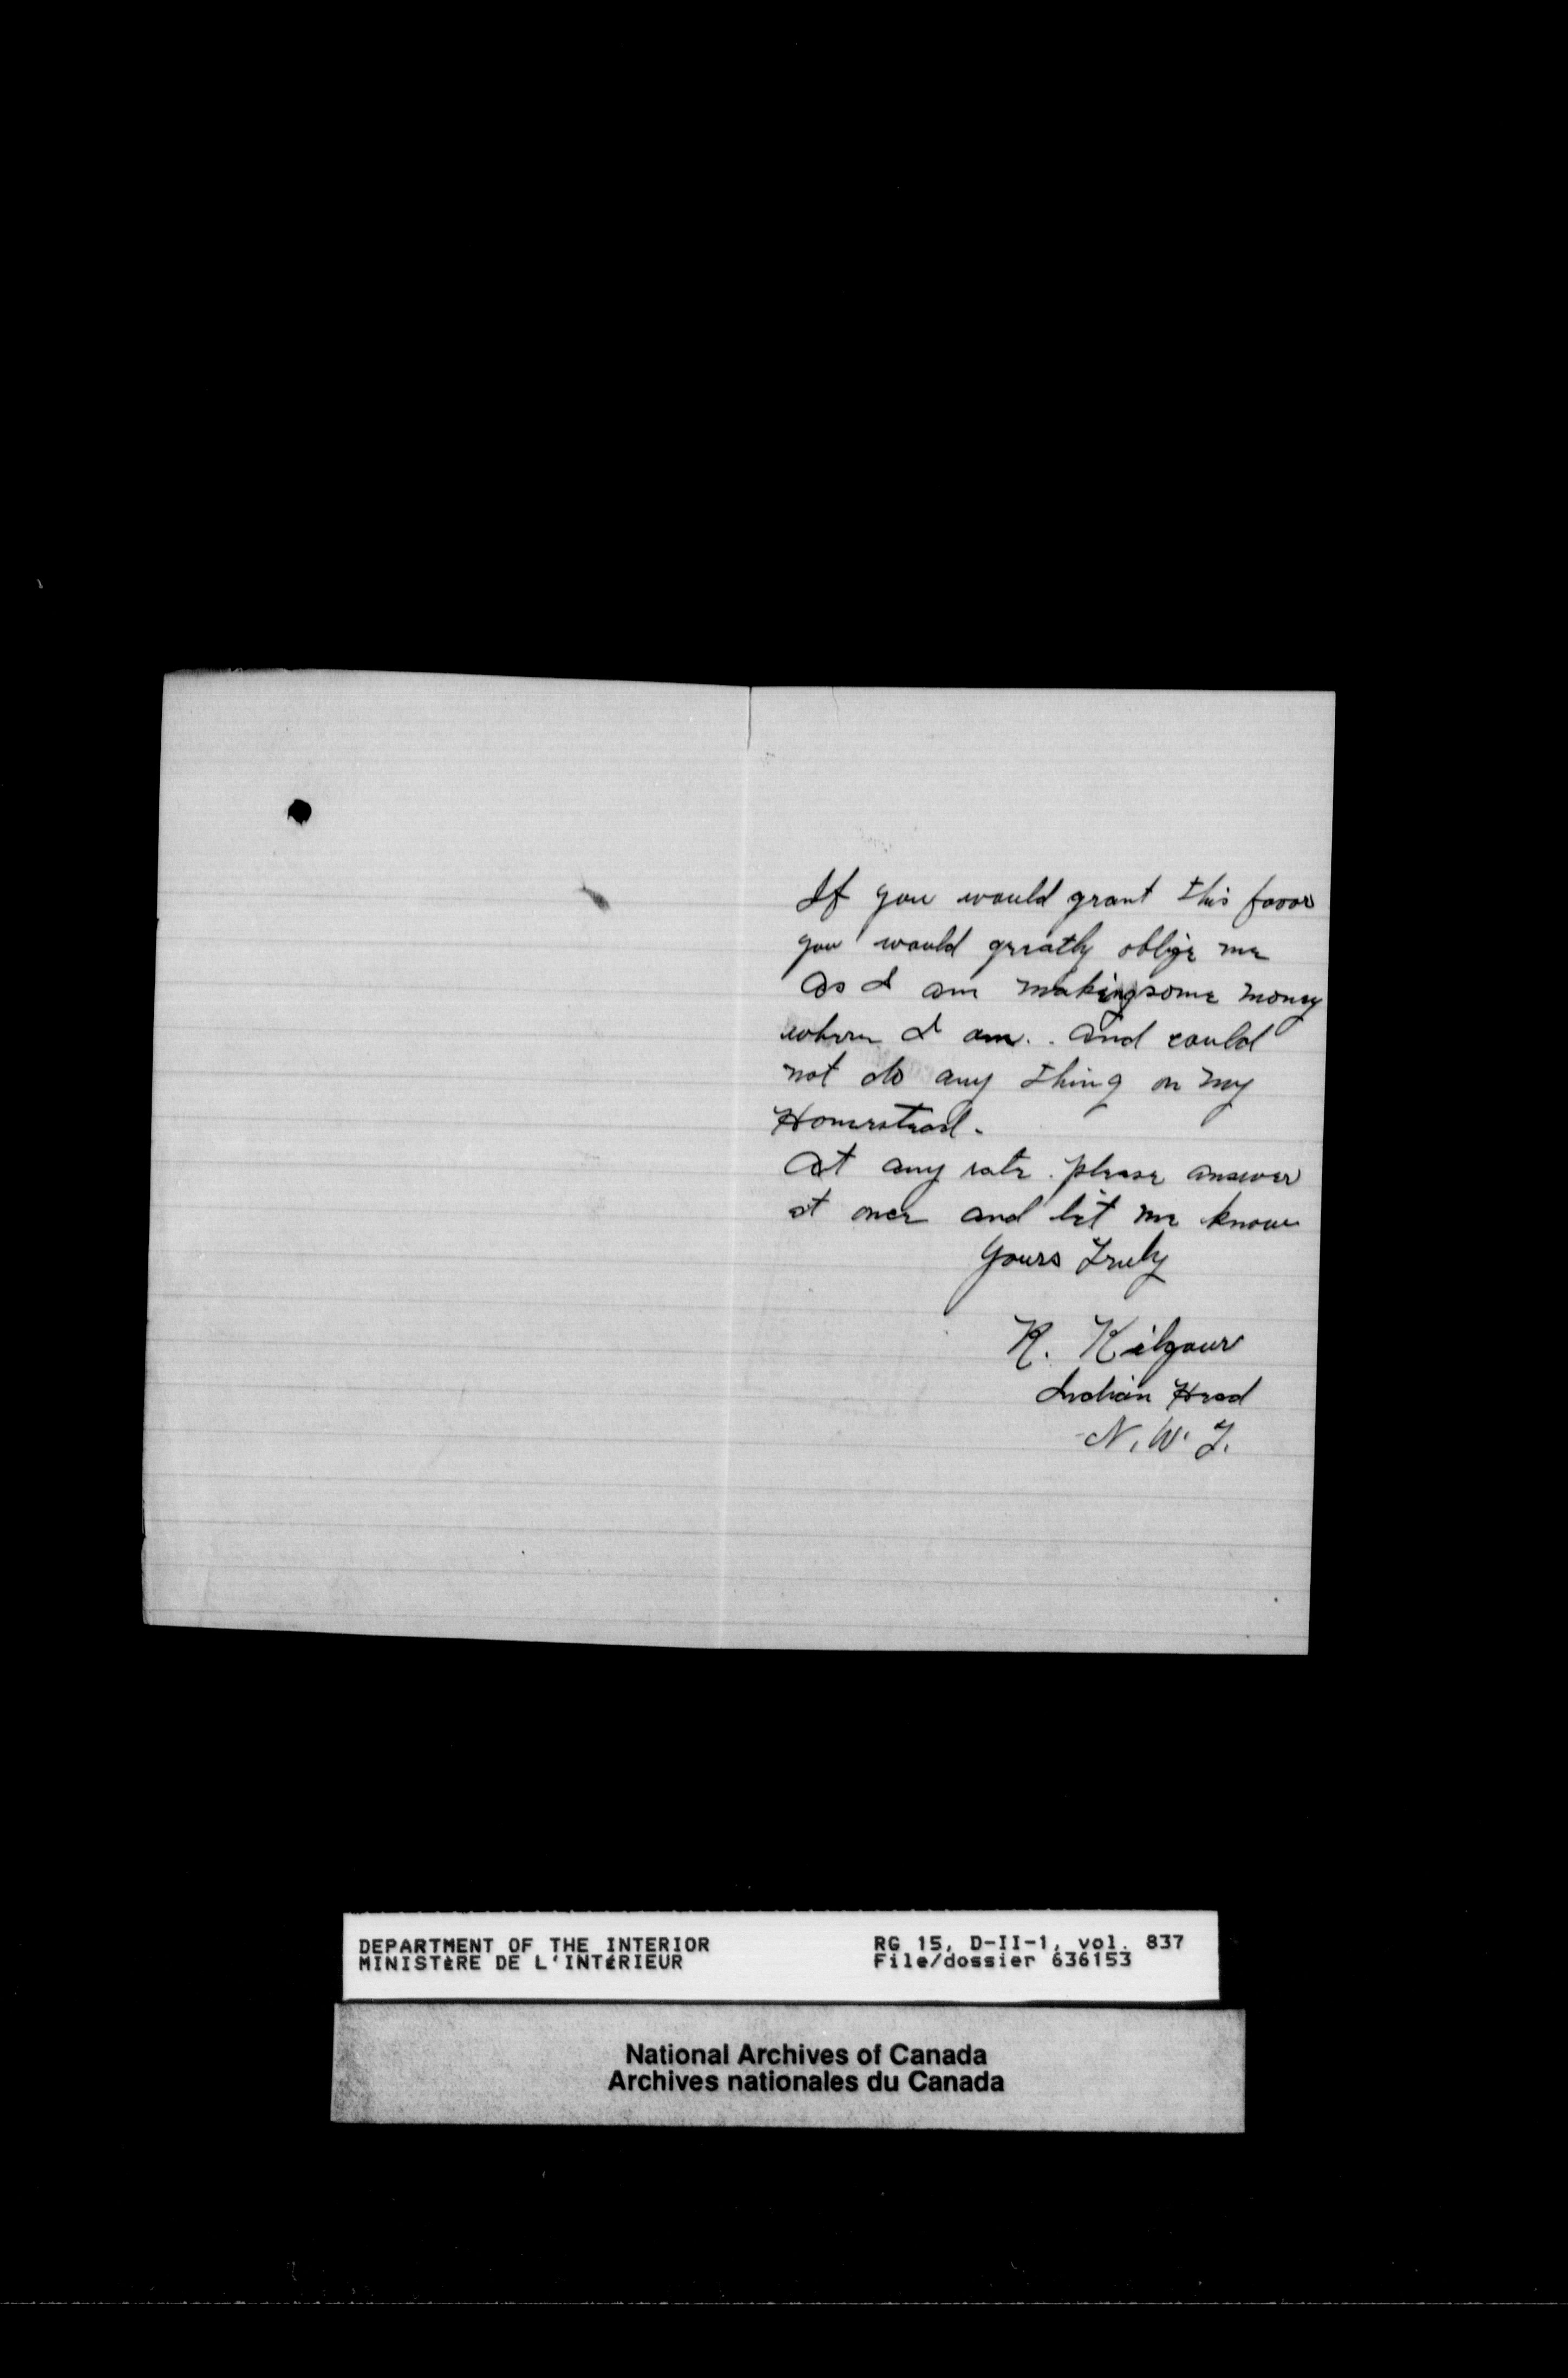 If you would grant this favor
you would greatly oblige me
as I am making some money
where I am.. and could
not do any thing on my
Homestead.
At any rate. please answer
at once and let me know
Yours Truly
R. Kilgour
Indian Head
N.W.T.
DEPARTMENT OF THE INTERIOR
MINISTÈRE DE L'INTÉRIEUR
RG 15, D-II-1, vol. 837
File/dossier 636153
National Archives of Canada
Archives nationales du Canada